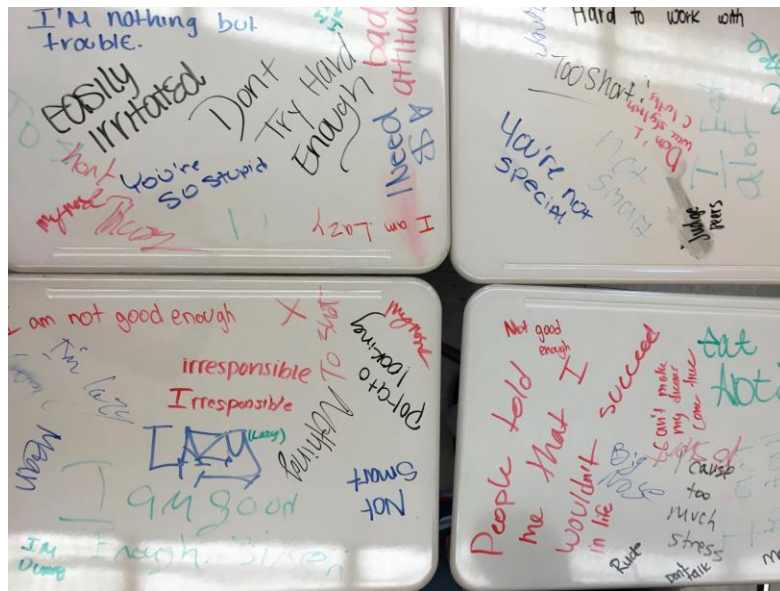 I'M nothing but
trouble.
EASILY
IRRitated
Dont
Try Hard
Enough
bad
attitude
I NEED
A $$
You're
so stupid
my nose
I am Lazy
Hard to work with
Too short!
You're not
special
not
smart
I Eat
alot
Judge
peers
I am not good enough
X
I'm lazy
Mean
irresponsible
Irresponsible
LAZY
(Lazy)
Nothing
my nose
potato
looking
Not
Smart
I am good
Enough.
I'm
Dumb
Not good
enough
People told
me that I
wouldn't succeed
in life
I can't make
my dreams
come true
fat
Big
Nose
I cause
too
much
stress
Rude
Don't
talk